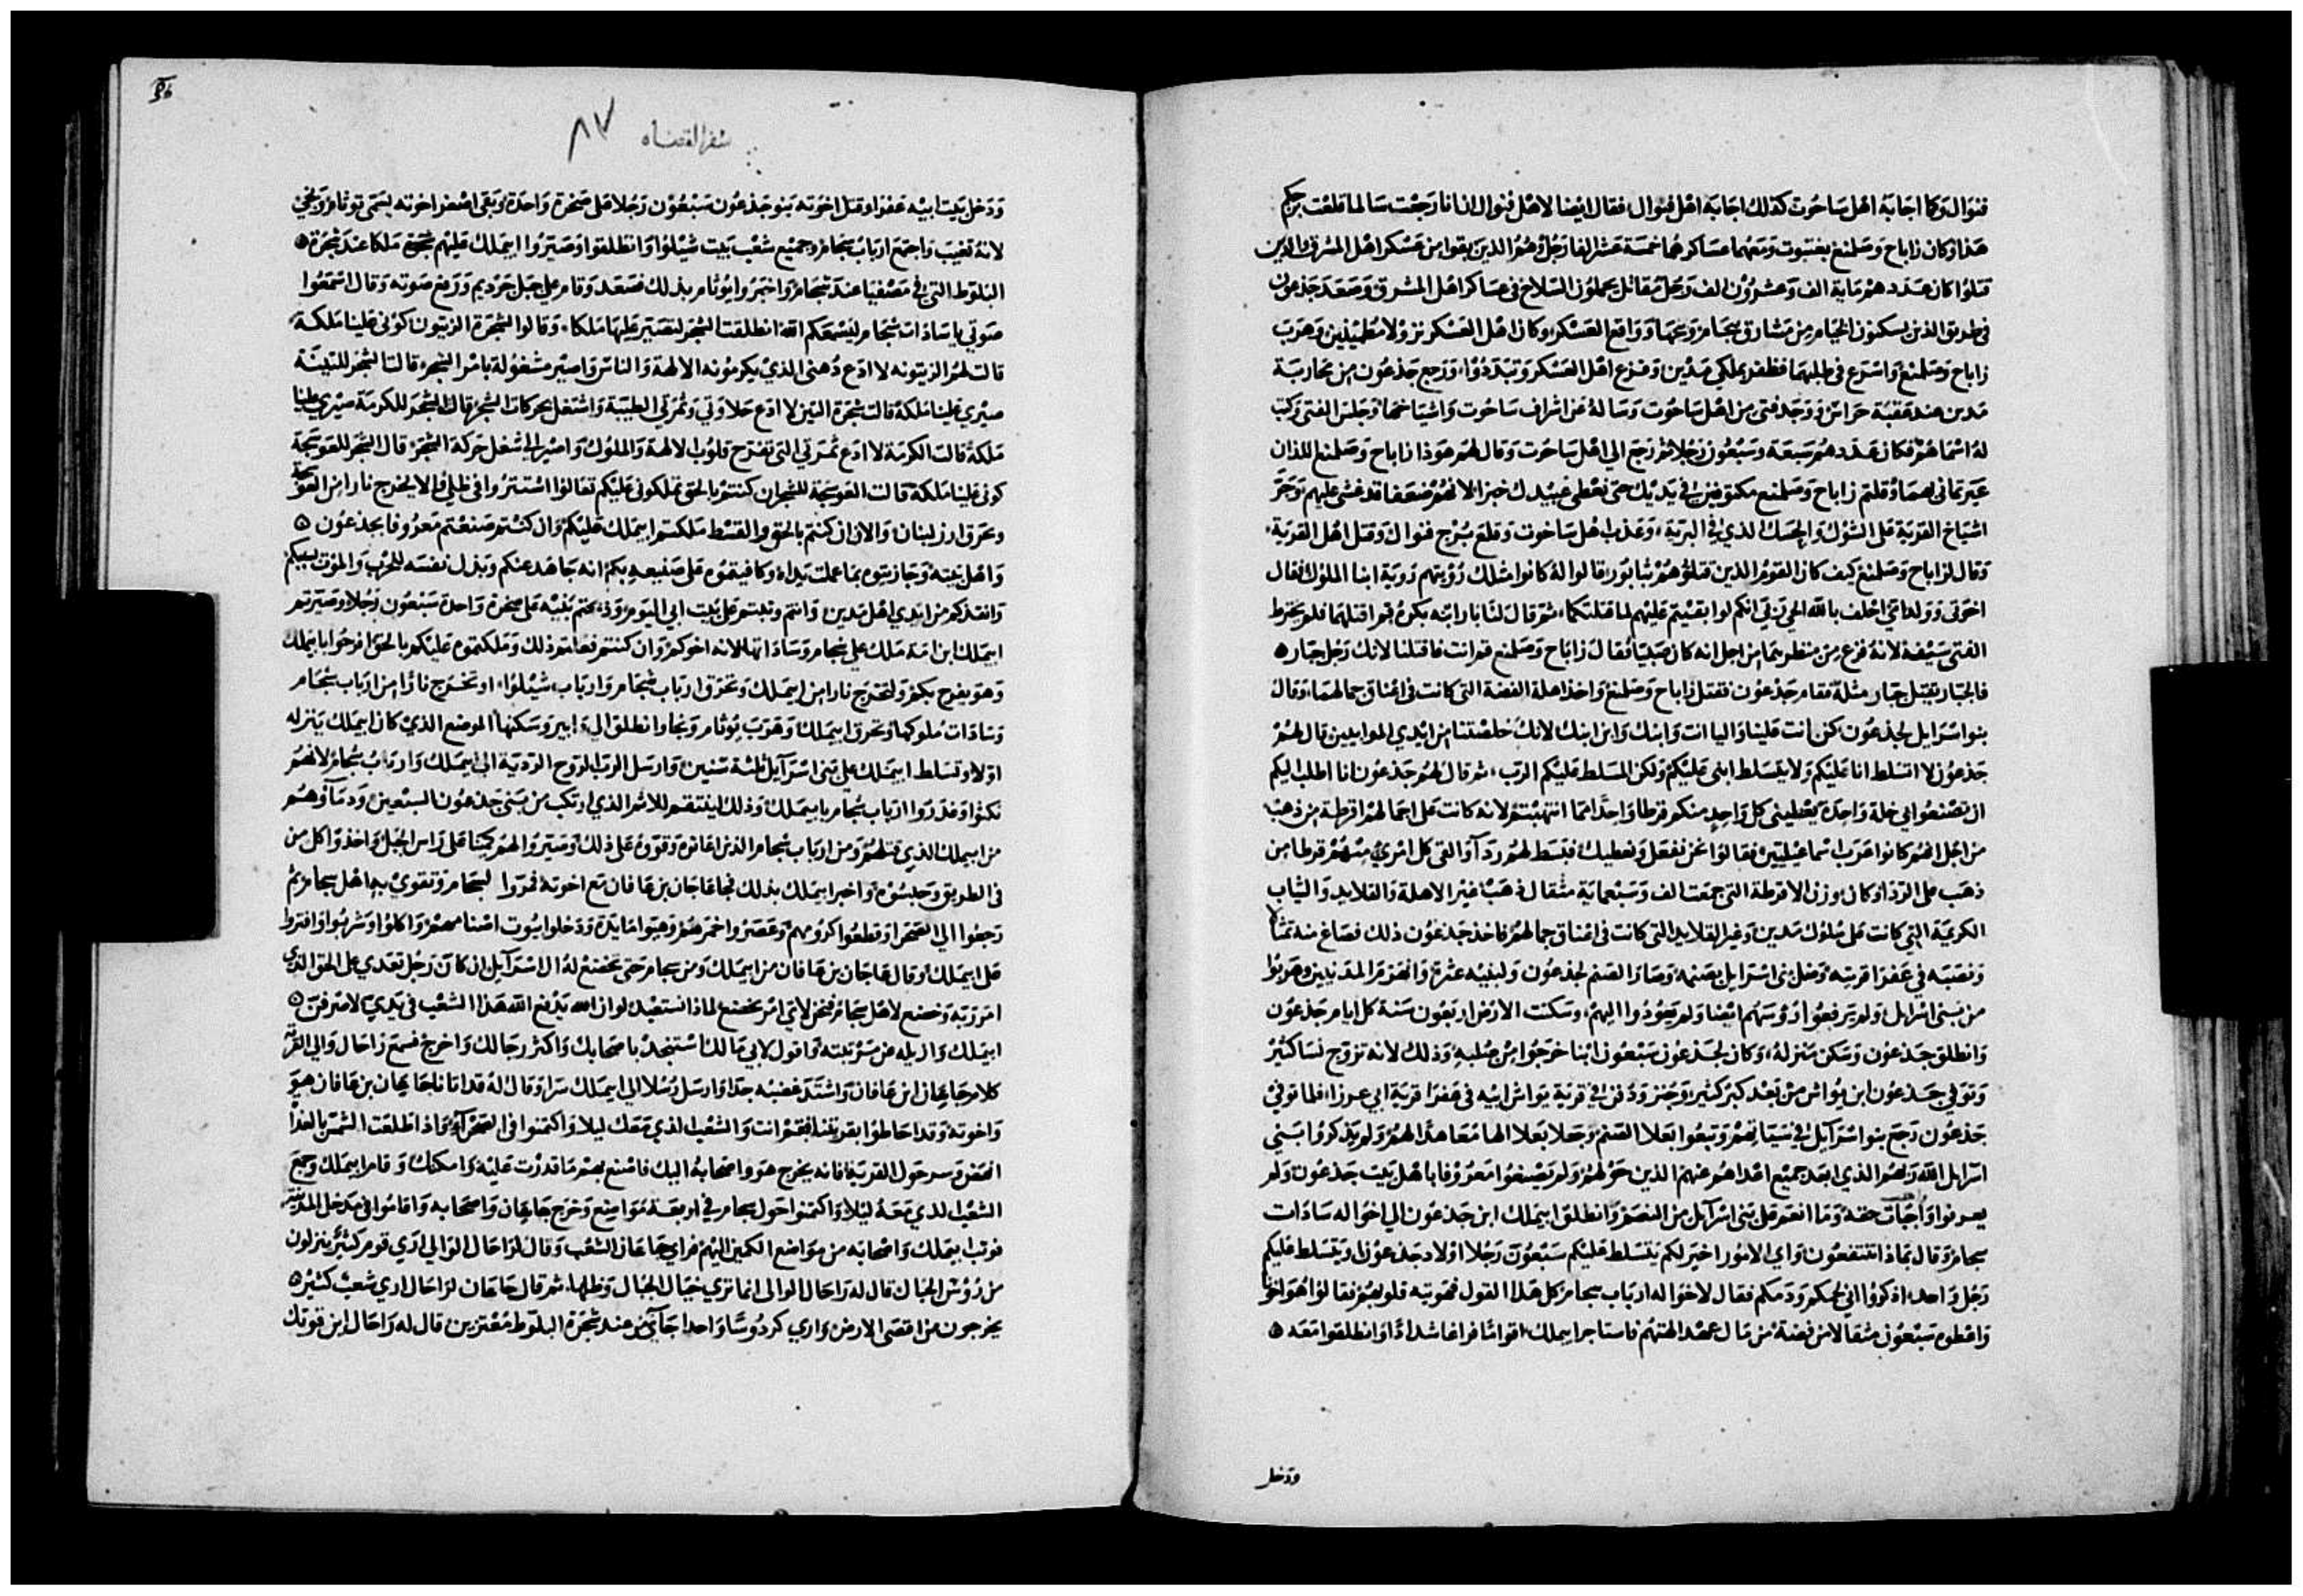 فنوال وكما اجابه اهل ساحوت كذلك اجابه اهل فنوال فقال ايضا لاهل فنوال ان انا رجعت سالما قلعت برجكم
هذا وكان زاباح وصلمنع بفنبوت ومعهما عساكرهما خمسة عشر الفا رجل وهم الذين بقوا من عسكر اهل المشرق الذين
قتلوا كان عددهم ماية الف وعشرون الف رجل مقاتل يحملون السلاح في عساكر اهل المشرق وصعد جذعون
في طريق الذين يسكنون الخيام من مشارق وواقع العسكر وكان اهل العسكر نزولا مطمينين وهرب
زاباح وصلمنع واسرع في طلبهما فظفر بملكي مدين وفزع اهل العسكر وتبددوا ورجع جذعون من محاربة
مدين عند عقبة حراس ووجد فتى من اهل ساحوت وساله عن اشراف ساحوت واشياخها وجلس الفتى وكتب
له اسماهم فكان عددهم سبعة وسبعون رجلا ثم رجع الي اهل ساحوت وقال لهم هوذا زاباح وصلمنع اللذان
عيرتماني بهما وقلتم زاباح وصلمنع مكتوفين في يديك حتى نعطي عبيدك خبزا لانهم ضعفا قد غشى عليهم
اشياخ القرية على الشوك والحسك الذي في البرية وعذب اهل ساحوت وقلع برج فنوال وقتل اهل القرية
وقال لزاباح وصلمنع كيف كان القوم الذين قتلتوهم بتابور قالوا له كانوا مثلك رؤيتهم روية ابنا الملوك فقال
اخوتي وولد امي احلف بالله الحي اني انكم لو ابقيتم عليهم لما قتلتكما ثم قال لنابار ابنه بكره قم اقتلهما فلم يخترط
الفتى سيفه لانه فزع من منظريهما من اجل انه كان صبيا فقال زاباح وصلمنع قم انت فاقتلنا لانك رجل جبار
فالجبار يقتل جبار مثله فقام جذعون فقتل زاباح وصلمنع واخذ اهلة الفضة التي كانت في اعناق جمالهما وقال
بنو اسرايل لجذعون كن انت علينا واليا انت وابنك وابن ابنك لانك خلصتنا من ايدي المدانيين قال لهم
جذعون لا اتسلط انا عليكم ولا يتسلط ابني عليكم ولكن المسلط عليكم الرب ثم قال لهم جذعون انا اطلب اليكم
ان تصنعوا بي خلة واحدة يعطيني كل واحد منكم قرطا واحدا مما انتهبتم لانه كانت على اجمالهم اقرطة من ذهب
من اجل انهم كانوا عرب اسماعيليين فقالوا نحن نفعل ونعطيك فبسط لهم رداء والقى كل امري منهم قرطا من
ذهب على الردا وكان وزن الاقرطة التي جمعت الف وسبعماية مثقال ذهبا غير الاهلة والقلايد والثياب
الكريمة التي كانت على ملوك مدين وغير القلايد التي كانت في اعناق جمالهم فاخذ جذعون ذلك فصاغ منه تمثالا
ونصبه في عفرا قريته وضل بني اسرايل بصنمه وصار الصنم لجذعون ولبنيه عثرة وانهزم المدنيين وهربوا
من بني اسرايل ولم يرفعوا روسهم ايضا ولم يعودوا اليهم وسكنت الارض اربعون سنة كل ايام جذعون
وانطلق جذعون وسكن منزله وكان لجذعون سبعون ابنا خرجوا من صلبه وذلك لانه تزوج نسا كثير
وتوفي جذعون ابن يواش من بعد كبر كثير وجنز ودفن في قرية يواش ابيه في عفرا قرية ابي عزرا فلما توفي
جذعون رجع بنو اسرآيل في وتبعوا بعلا الصنم وجعلا بعلا الها معاهدا لهم ولم يذكروا بني
اسرايل الله ربهم الذي ابعد جميع اعداهم عنهم الذين حولهم ولم يصنعوا معروفا باهل بيت جذعون ولم
يعرفوا واجبات حقه وما انعم على بني اسرآيل من النصر وانطلق ابيملك ابن جذعون الي اخواله سادات
سجام وقال بماذا تنتفعون واي الامور اخير لكم يتسلط عليكم سبعون رجلا اولاد جذعون او يتسلط عليكم
رجل واحد اذكروا اني لحمكم ودمكم فقال لاخواله ارباب سجام كل هذا القول فهويته قلوبهم فقالوا هو اخونا
واعطوه سبعون مثقالا من فضة من مال عهد الهتهم فاستاجر ابيملك اقواما فراغا شدادا وانطلقوا معه
ودخل
سفر القضاه
٨٧
ودخل بيت ابيه عفرا وقتل اخوته بنو جذعون سبعون رجلا على صخرة واحدة وبقى اصغر اخوته يسمى توثام ونجى
لانه تغيب واجتمع ارباب سجام وجميع شعب بيت شيلوا وانطلقوا وصيروا ابيملك عليهم ملكا عند شجرة
البلوط التي في مصفيا عند سجام واخبروا يوثام بذلك فصعد وقام على جبل جرديم ورفع صوته وقال اسمعوا
صوتي يا سادات سجام ليسمعكم الله انطلقت الشجر لتصير عليها ملكا وقالوا لشجرة الزيتون كوني علينا ملكة
قالت لهم الزيتونه لا ادع دهني الذي يكرمونه الالهة والناس واصير مشغولة بامر الشجر قالت الشجر للتينة
صيري علينا ملكة قالت شجرة التين لا ادع حلاوتي وثمرتي الطيبة واشتغل بحركات الشجر قال الشجر للكرمة صيري علينا
ملكة قالت الكرمة لا ادع ثمرتي التي تفرح قلوب الالهة والملوك واصير الى شغل حركة الشجر قال الشجر للعوسجة
كوني علينا ملكة قالت العوسجة للشجر ان كنتم بالحق تملكوني عليكم تعالوا استتروا في ظلي والا يخرج نارا من العوسجة
وتحرق ارز لبنان والان ان كنتم بالحق والقسط ملكتم ابيملك عليكم وان كنتم صنعتم معروفا بجذعون
واهل بيته وجازيتوه بما عملت يداه وكافيتموه على صنيعه بكم انه جاهد عنكم وبذل نفسه للحرب والموت بسببكم
وانقذكم من ايدي اهل مدين وانتم وثبتم على بيت ابي اليوم وذبحتم بنيه على صخرة واحدة سبعون رجلا وصيرتم
ابيملك ابن امته ملك على سجام وساداتها لانه اخوكم وان كنتم فعلتم ذلك وملكتموه عليكم بالحق افرحوا بابيملك
وهو يفرح بكم ولتخرج نارا من ابيملك وتحرق ارباب سجام وارباب شيلوا او تخرج نارا من ارباب سجام
وسادات ملوكها وتحرق ابيملك وهرب يوثام ونجا وانطلق الى ابير وسكنها الموضع الذي كان ابيملك ينزله
اولا وتسلط ابيملك على بني اسرآيل ثلثة سنين وارسل الرب الروح الردية الى ابيملك وارباب سجام لانهم
نكثوا وغدروا ارباب سجام بابيملك وذلك لينتقم للاثم الذي ارتكب من بني جذعون السبعين ودمآوهم
من ابيملك الذي قتلهم ومن ارباب سجام الذين اعانوه وقووه على ذلك وصيروا لهم كمينا على راس الجبل واخذوا كل من
في الطريق وحبسوه واخبر ابيملك بذلك فجا غاجان بن عافان مع اخوته فمروا لسجام وتقوي بها اهل سجام ثم
رجعوا الي الصحرا وقطعوا كرومهم وعصروا خمرهم وهيوا مايدة ودخلوا بيوت اصنامهم واكلوا وشربوا وافتروا
على ابيملك وقال غاجان بن عافان من ابيملك ومن سجام حتى نخضع له ال اسرآيل ان كان رجل تعدي على الحق الذي
امر ربه وخضع لاهل سجام فنحن لاي امر نخضع لماذا نستعبد لو ان الله يدفع الله هذا الشعب في يدي لاصرفن
ابيملك وازيله من مرتبته واقول لابيمالك استنجد باصحابك واكثر رجالك واخرج فسمع زاحال والي القرية
كلام جاعان ابن عافان واشتد غضبه جدا وارسل رسلا الى ابيملك سرا وقال له قد اتانا جاعان بن عافان هو
واخوته وقد احاطوا بقريتنا فقم انت والشعب الذي معك ليلا واكمنوا في الصحرآء واذا طلعت الشمس بالغدا
انهض وسر حول القرية فانه يخرج هو واصحابه اليك فاصنع بهم ما قدرت عليه وامكنك وقام ابيملك وجميع
الشعب الذي معه ليلا واكمنوا حول سجام في اربعة مواضع وخرج جاعان واصحابه واقاموا في مدخل المدينة
فوثب ابيملك واصحابه من مواضع الكمين اليهم فراي جاعان الشعب وقال لزاحال الوالي اري قوم كثير ينزلون
من رؤس الجبال قال له زاحال الوالى انما تري خيال الجبال وظلها ثم قال جاعان لزاحال اري شعب كثير
يخرجون من اقصى الارض واري كردوسا واحدا جآئي من عند شجرة البلوط مفترين قال له زاحال اين قوتك